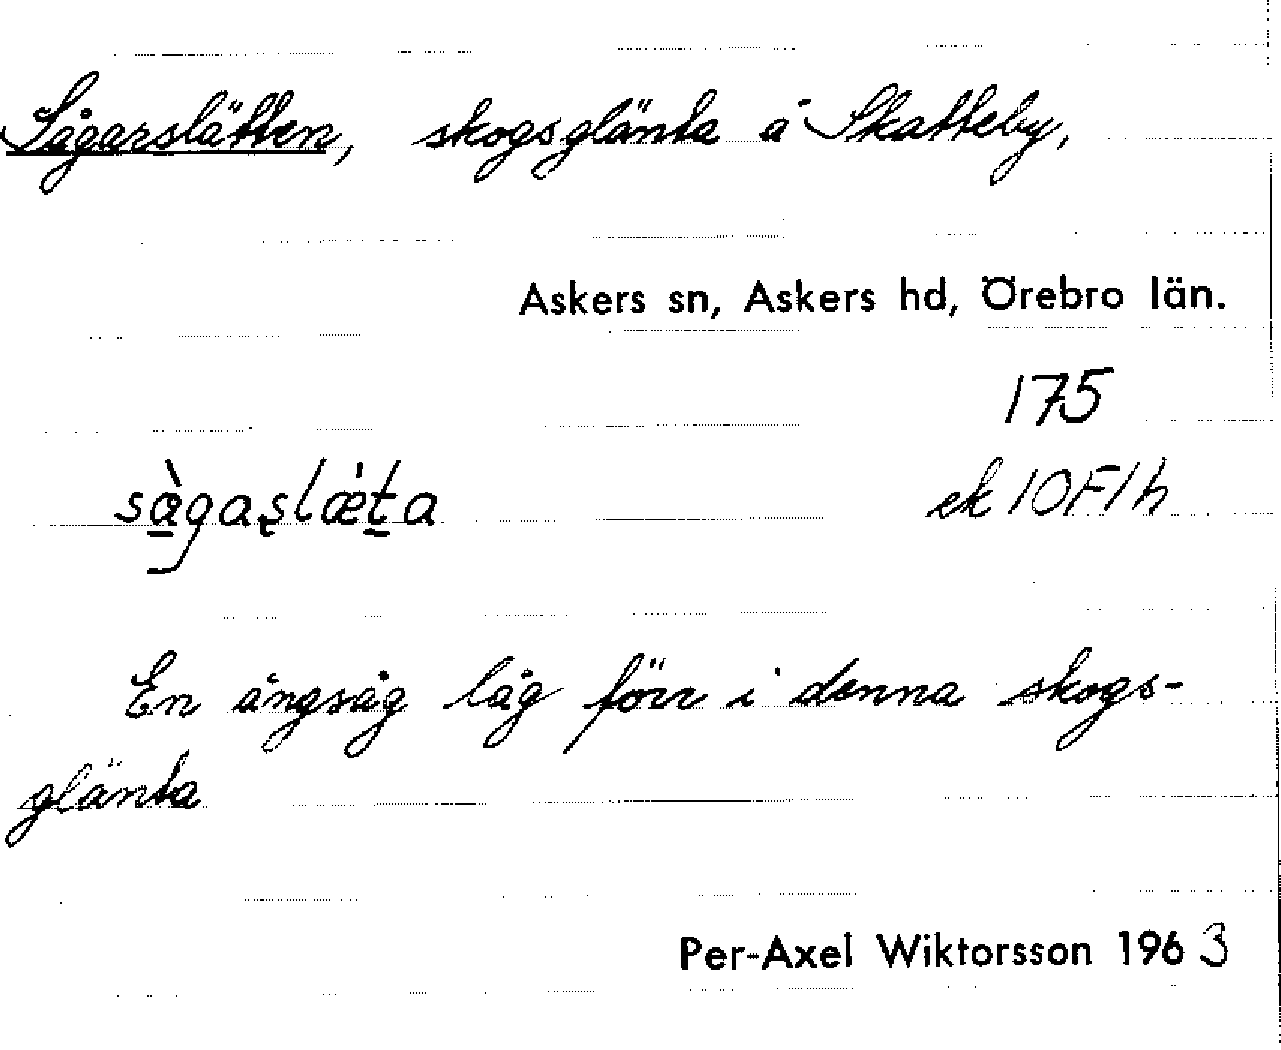 Sågarslätten, skogsglänta å Skatteby,
Askers sn, Askers hd, Örebro län.
175
ek 10F1h
En ängsåg låg förr i denna skogs-
glänta
Per-Axel Wiktorsson 1963